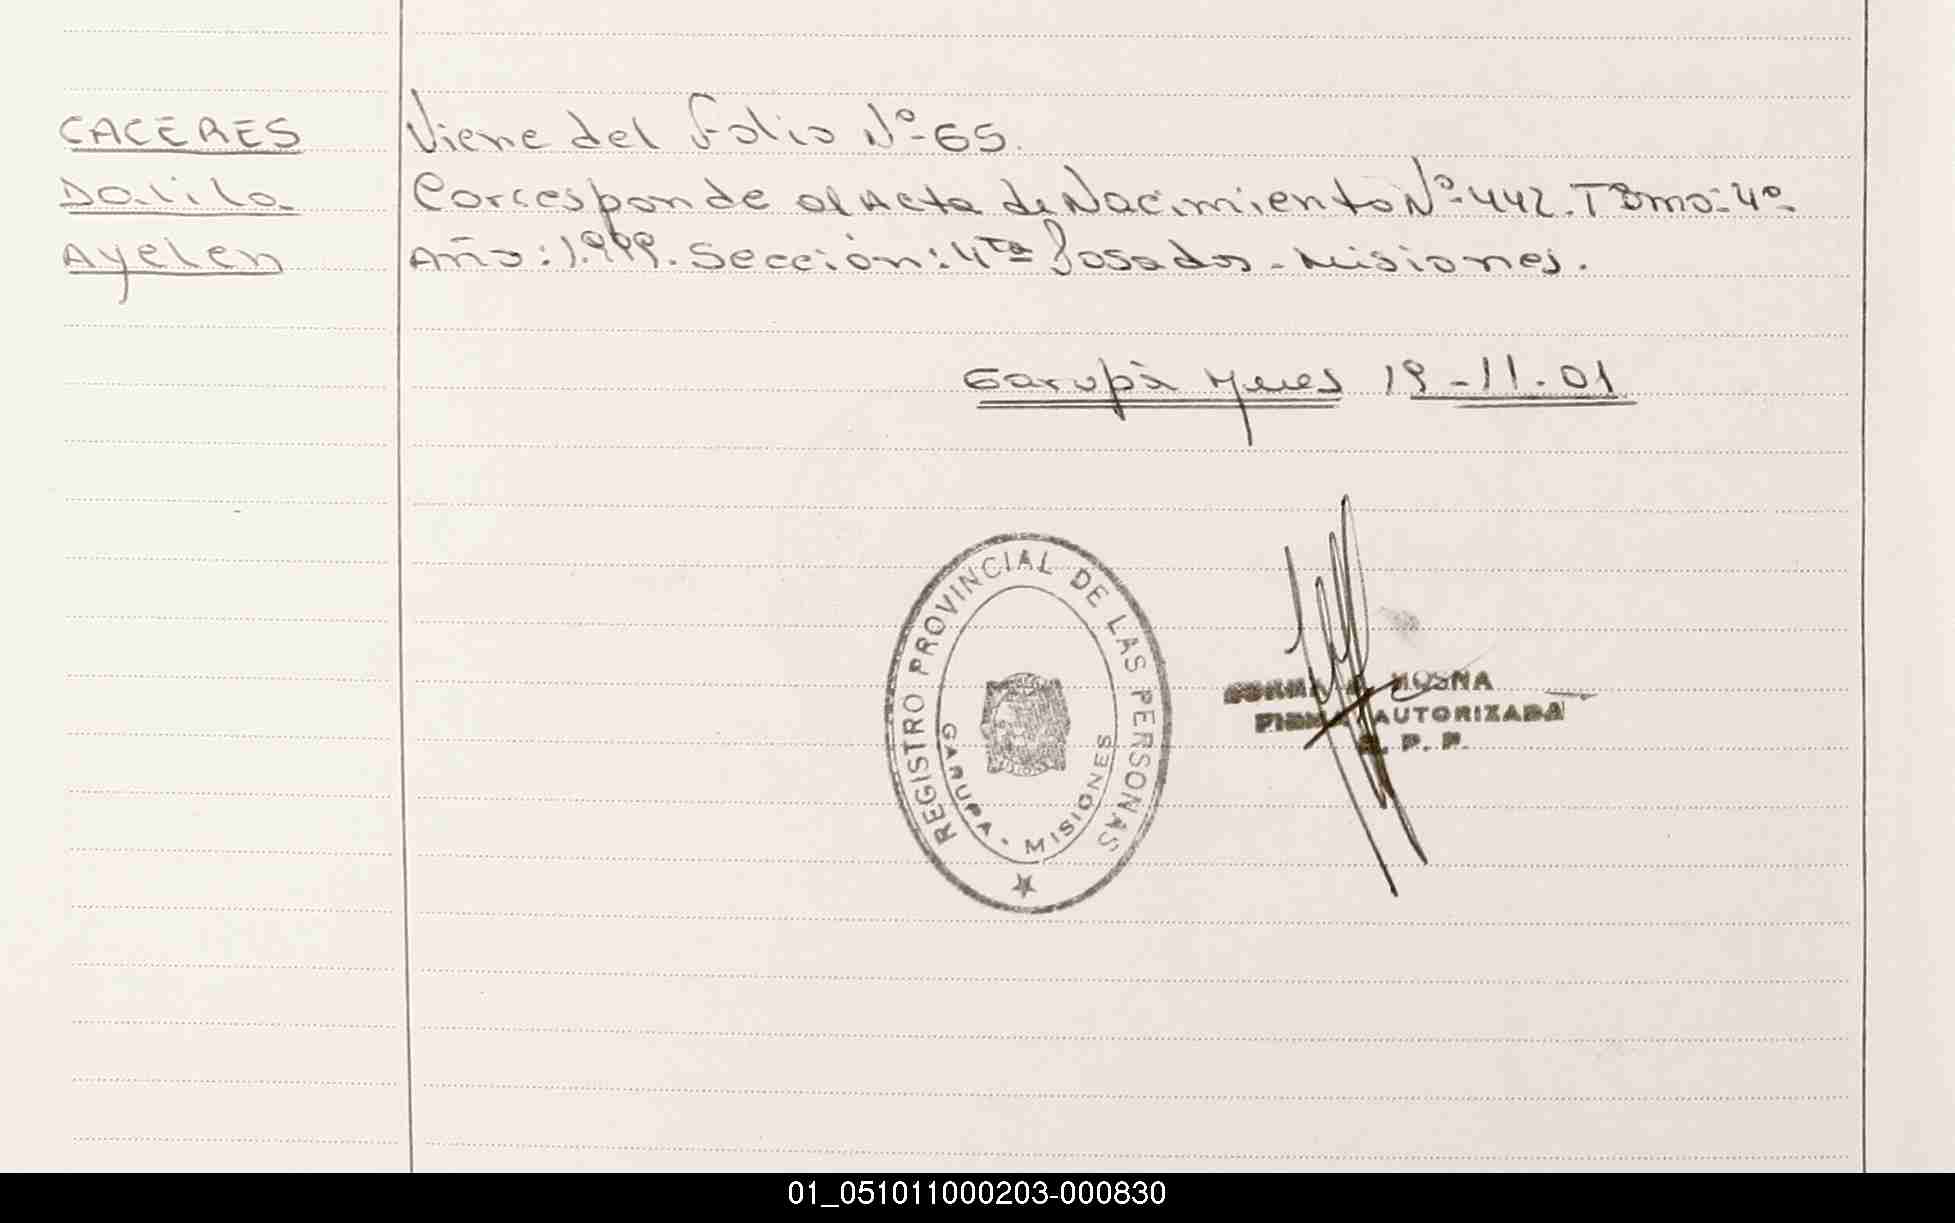 CACERES
Dalila
Ayelen
Viene del Folio Nº-65.
Corresponde al Acta de Nacimiento Nº-442. Tomo: 4º-
Año: 1.999. Sección: 4ta Posadas - Misiones.
Garupá Mnes 19-11-01
REGISTRO PROVINCIAL DE LAS PERSONAS
GARUPA - MISIONES
MOSNA
FIRMA AUTORIZADA
R. P. P.
01_051011000203-000830